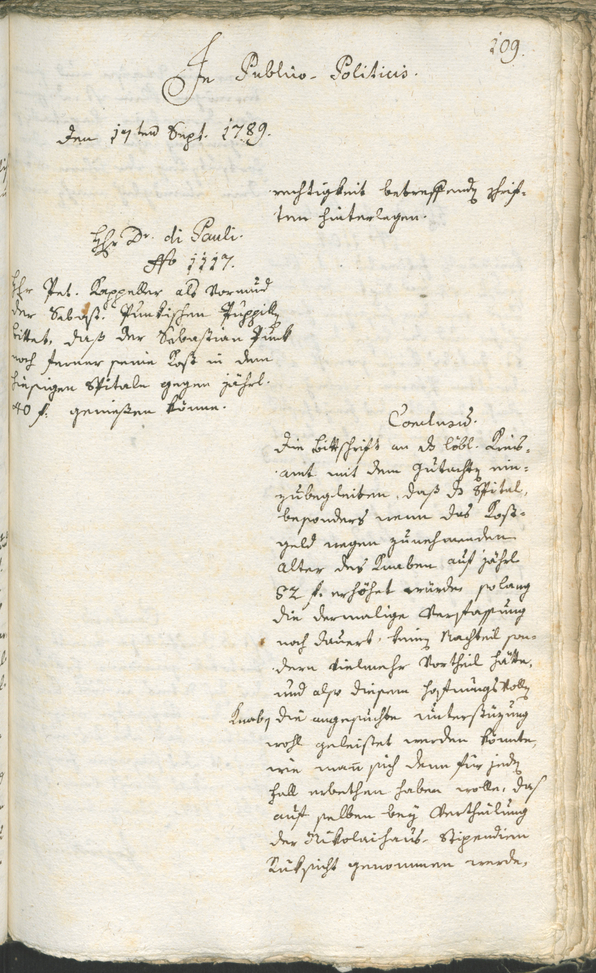 109.
In Publico-Politicis.
Den 17ten Sept. 1789.
rechtigkeit betreffende Schrif-
ten hinterlegen.
Hr Dr. di Pauli.
1117.
Hr Pet. Kappeller als Vormund
der Sebast. Funkischen Puppillen
bittet, daß der Sebastian Funk
noch ferner seine Kost in dem
hiesigen Spitale gegen jährl.
40 f. genießen könne.
Conclusum.
Die Bittschrift an das löbl. Kreis-
amt mit dem Gutachten ein-
zubegleiten, daß das Spital,
besonders wenn das Kost-
geld wegen zunehmenden
Alter des Knaben auf jährl
52 f. erhöhet würde, solang
die dermalige Verfassung
noch dauert, keinen Nachteil son-
dern vielmehr Vortheil hätte,
und also diesem hofnungsvollen
Knaben die angesuchte Unterstüzung
wohl geleistet werden könnte,
wie man sich denn für jeden
Fall erbethen haben wolle, daß
auf selben bey Vertheilung
der Nikolaihaus-Stipendien
Rüksicht genommen werde,